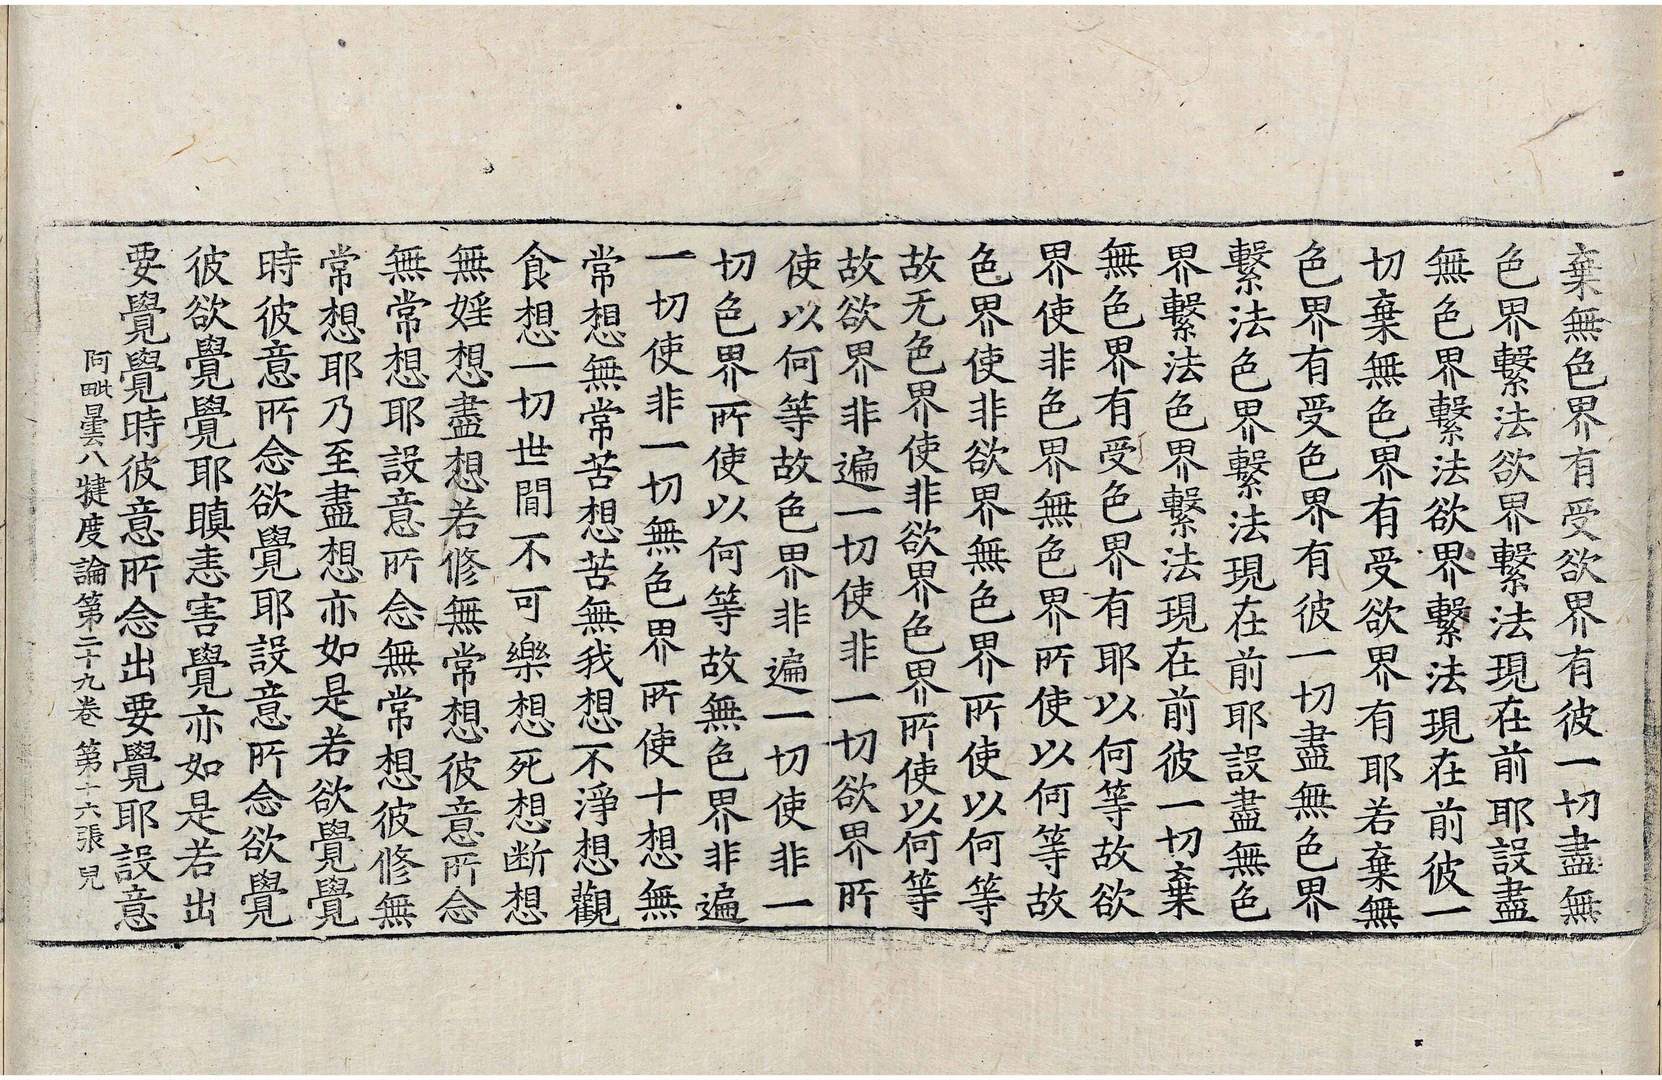 棄無色界有受欲界有彼一切盡無
色界繫法欲界繫法現在前耶設盡
無色界繫法欲界繫法現在前彼一
切棄無色界有受欲界有耶若棄無
色界有受色界有彼一切盡無色界
繫法色界繫法現在前耶設盡無色
界繫法色界繫法現在前彼一切棄
無色界有受色界有耶以何等故欲
界使非色界無色界所使以何等故
色界使非欲界無色界所使以何等
故无色界使非欲界色界所使以何等
故欲界非遍一切使非一切欲界所
使以何等故色界非遍一切使非一
切色界所使以何等故無色界非遍
一切使非一切無色界所使十想無
常想無常苦想苦無我想不淨想觀
食想一切世間不可樂想死想断想
無婬想盡想若修無常想彼意所念
無常想耶設意所念無常想彼修無
常想耶乃至盡想亦如是若欲覺覺
時彼意所念欲覺耶設意所念欲覺
彼欲覺覺耶瞋恚害覺亦如是若出
要覺覺時彼意所念出要覺耶設意
阿毗曇八犍度論第二十九卷 第十六張 兒